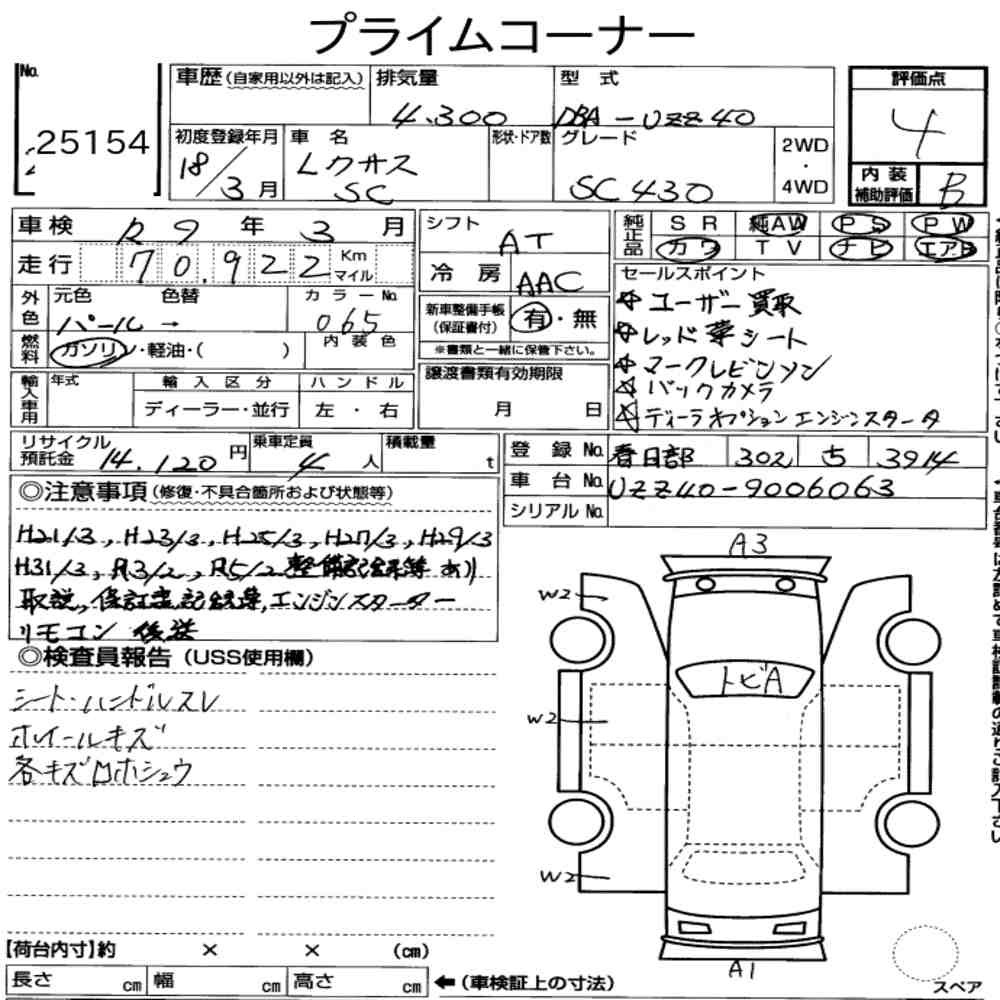 プライムコーナー
No. 25154
車歴（自家用以外は記入） 排気量 4.300 型式 DBA-UZZ40
評価点 4
内装補助評価 B
初度登録年月 18/3月 車名 レクサス SC 形状・ドア数 グレード SC430 2WD・4WD
車検 R9年 3月
走行 70.922 Km マイル
シフト AT
冷房 AAC
純正品 SR 純AW PS PW
カワ TV ナビ エアB
外色 元色 パール→ 色替 カラーNo. 065
燃料 ガソリン・軽油・（ ） 内装色
新車整備手帳（保証書付） 有・無
※書類と一緒に保管下さい。
輸入車用 年式 輸入区分 ディーラー・並行 ハンドル 左・右
譲渡書類有効期限 月 日
セールスポイント
☆ユーザー買取
☆レッド革シート
☆マークレビンソン
☆バックカメラ
☆ディーラオプションエンジンスタータ
リサイクル預託金 14.120円 乗車定員 4人 積載量 t
登録No. 春日部 302 ち 3914
車台No. UZZ40-9006063
シリアルNo.
◎注意事項（修復・不具合箇所および状態等）
H21/3, H23/3, H25/3, H27/3, H29/3
H31/3, R3/2, R5/2 整備記録等あり
取説, 保証書記録簿, エンジンスターター
リモコン 後送
◎検査員報告（USS使用欄）
シート・ハンドルスレ
ホイールキズ
各キズロホシュウ
A3
W2
トビA
W2
W2
A1
スペア
【荷台内寸】約 × × （cm）
長さ cm 幅 cm 高さ cm ←（車検証上の寸法）